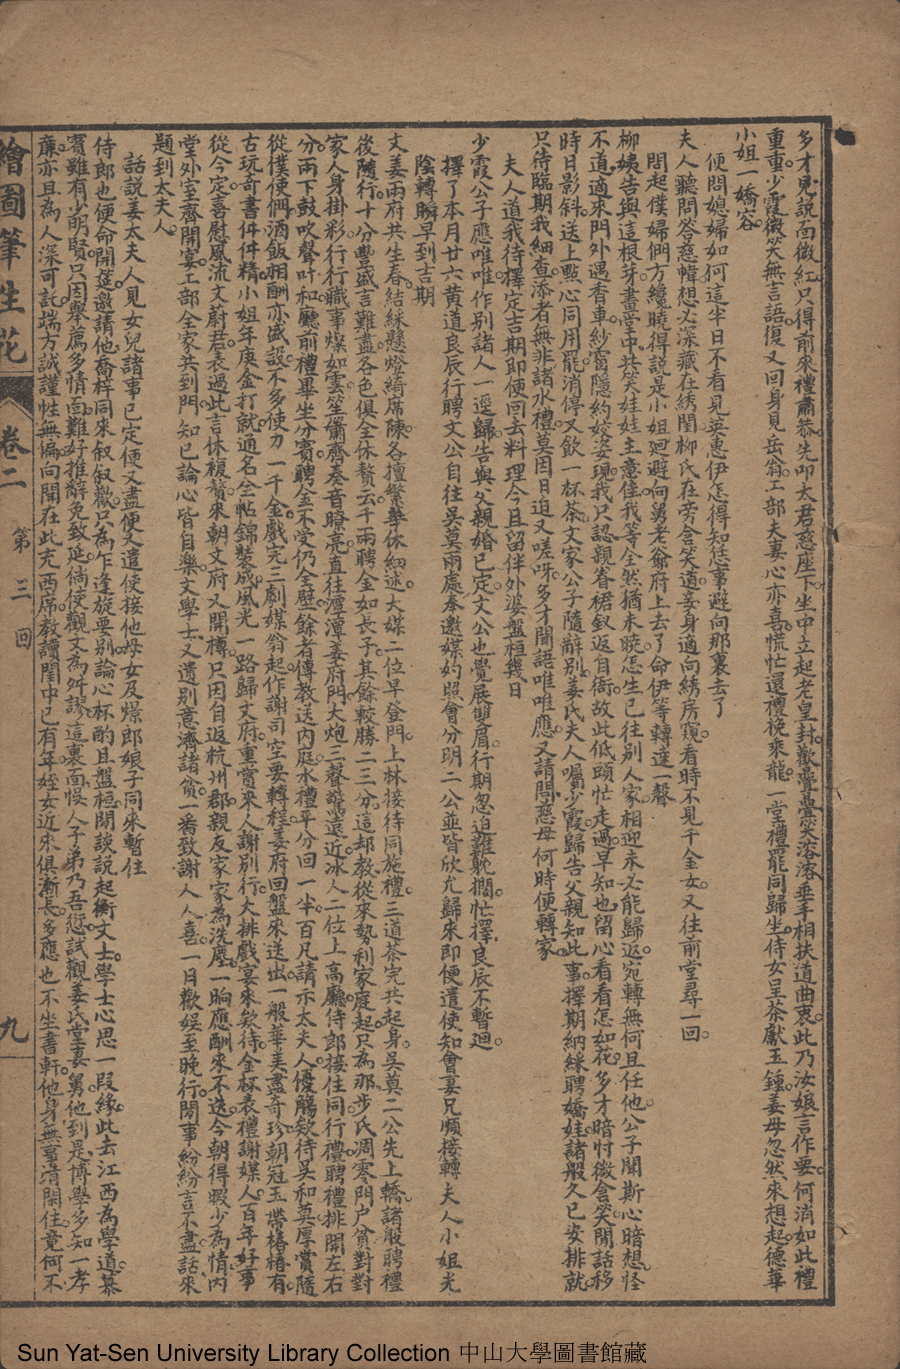 多才見說面微紅只得前來禮肅恭先叩太君慈座下坐中立起老皇封歡疊疊笑溶溶垂手相扶道曲衷此乃汝娘言作要何消如此禮
重重少霞微笑無言語復又回身見岳翁工部夫妻心亦喜慌忙還禮挽乘龍一堂禮罷同歸坐侍女呈茶獻玉鍾姜母忽然來想起德華
小姐一嬌容
便問媳婦如何這半日不看見英惠伊怎得知恁事避向那裏去了
夫人聽問答慈幃想必深藏在綉閨柳氏在旁含笑道妾身適向綉房窺看時不見千金女又往前堂尋一回
問起僕婦們方纔曉得說是小姐迴避向舅老爺府上去了命伊等轉達一聲
柳姨告與這根芽書堂中共笑娃娃主意佳我等全然猶未曉怎生已往別人家相迎未必能歸返宛轉無何且任他公子聞斯心暗想怪
不道適來門外遇香車紗窗隱約姣姿現我只認親眷裙釵返自衙故此低頭忙走過早知也留心看看怎如花多才暗忖微含笑閒話移
時日影斜送上點心同用罷消停又飲一杯茶文家公子隨辭別姜氏夫人囑少霞歸告父親知此事擇期納綵聘嬌娃諸般久已安排就
只待臨期我細查添者無非諸水禮莫因日迫又嗟呀多才聞語唯唯應又請問慈母何時便轉家
夫人道我待擇定吉期即便回去料理今且留伴外婆盤桓幾日
少霞公子應唯唯作別諸人一逕歸告與父親婚已定文公也覺展雙眉行期忽迫難耽擱忙擇良辰不暫迴
擇了本月廿六黃道良辰行聘文公自往吳莫兩處奉邀媒妁照會分明二公並皆欣允歸來即便遣使知會妻兄順接轉夫人小姐光
陰轉瞬早到吉期
文姜兩府共生春結綵懸燈綺席陳各擅繁華休細述大媒二位早登門上林接待同施禮三道茶完共起身吳莫二公先上轎諸般聘禮
後隨行十分豐盛言難盡各色俱全休贅云千兩聘金如長子其餘較勝二三分這却教從來勢利家庭起只為那步氏凋零門戶貧對對
家人身掛彩行行職事燦如雲笙簫齊奏音瞭亮直往潭潭姜府門大炮三聲驚遠近冰人二位上高廳侍郎接住同行禮聘禮排開左右
分兩下鼓吹聲叶和廳前禮畢坐分賓聘金不受仍全璧餘者傳教送內庭水禮平分回一半百凡請示太夫人優觴欸待吳和莫厚賞隨
從僕使們酒飯相酬亦盛設不多使力一千金戲完三劇媒翁起作謝司空要轉程姜府回盤來送出一般華美盡奇珍朝冠玉帶樁樁有
古玩奇書件件精小姐年庚金打就通名全帖錦裝成風光一路歸文府重賞來人謝別行大排戲宴來欸待金杯表禮謝媒人百年好事
從今定喜慰風流文蔚君表過此言休複贅來朝文府又開樽只因自返杭州郡親友家家為洗塵一晌應酬來不迭今朝得暇少為情內
堂外室齋開宴工部全家共到門知己論心皆自樂文學士又遺別意濟諸貧一番致謝人人喜一日歡娛至晚行閒事紛紛言不盡話來
題到太夫人
話說姜太夫人見女兒諸事已定便又盡便又遣使接他母女及爆郎娘子同來暫住
侍郎也便命開筵邀請他喬梓同來叙叙歡只為乍逢旋要別論心杯酌且盤桓閒談說起衡文士學士心思一段緣此去江西為學道幕
賓雖有少明賢只因舉薦多情面難好推辭免致延倘使觀文為舛謬這裏面悞人子弟乃吾愆試觀姜氏堂妻舅他到是博學多知一孝
廉亦且為人深可託端方誠謹性無偏向聞在此充西席教讀閨中已有年姪女近來俱漸長多應也不坐書軒他身無羣滯閑住竟何不
繪圖筆生花 卷二 第三回 九
Sun Yat-Sen University Library Collection 中山大學圖書館藏